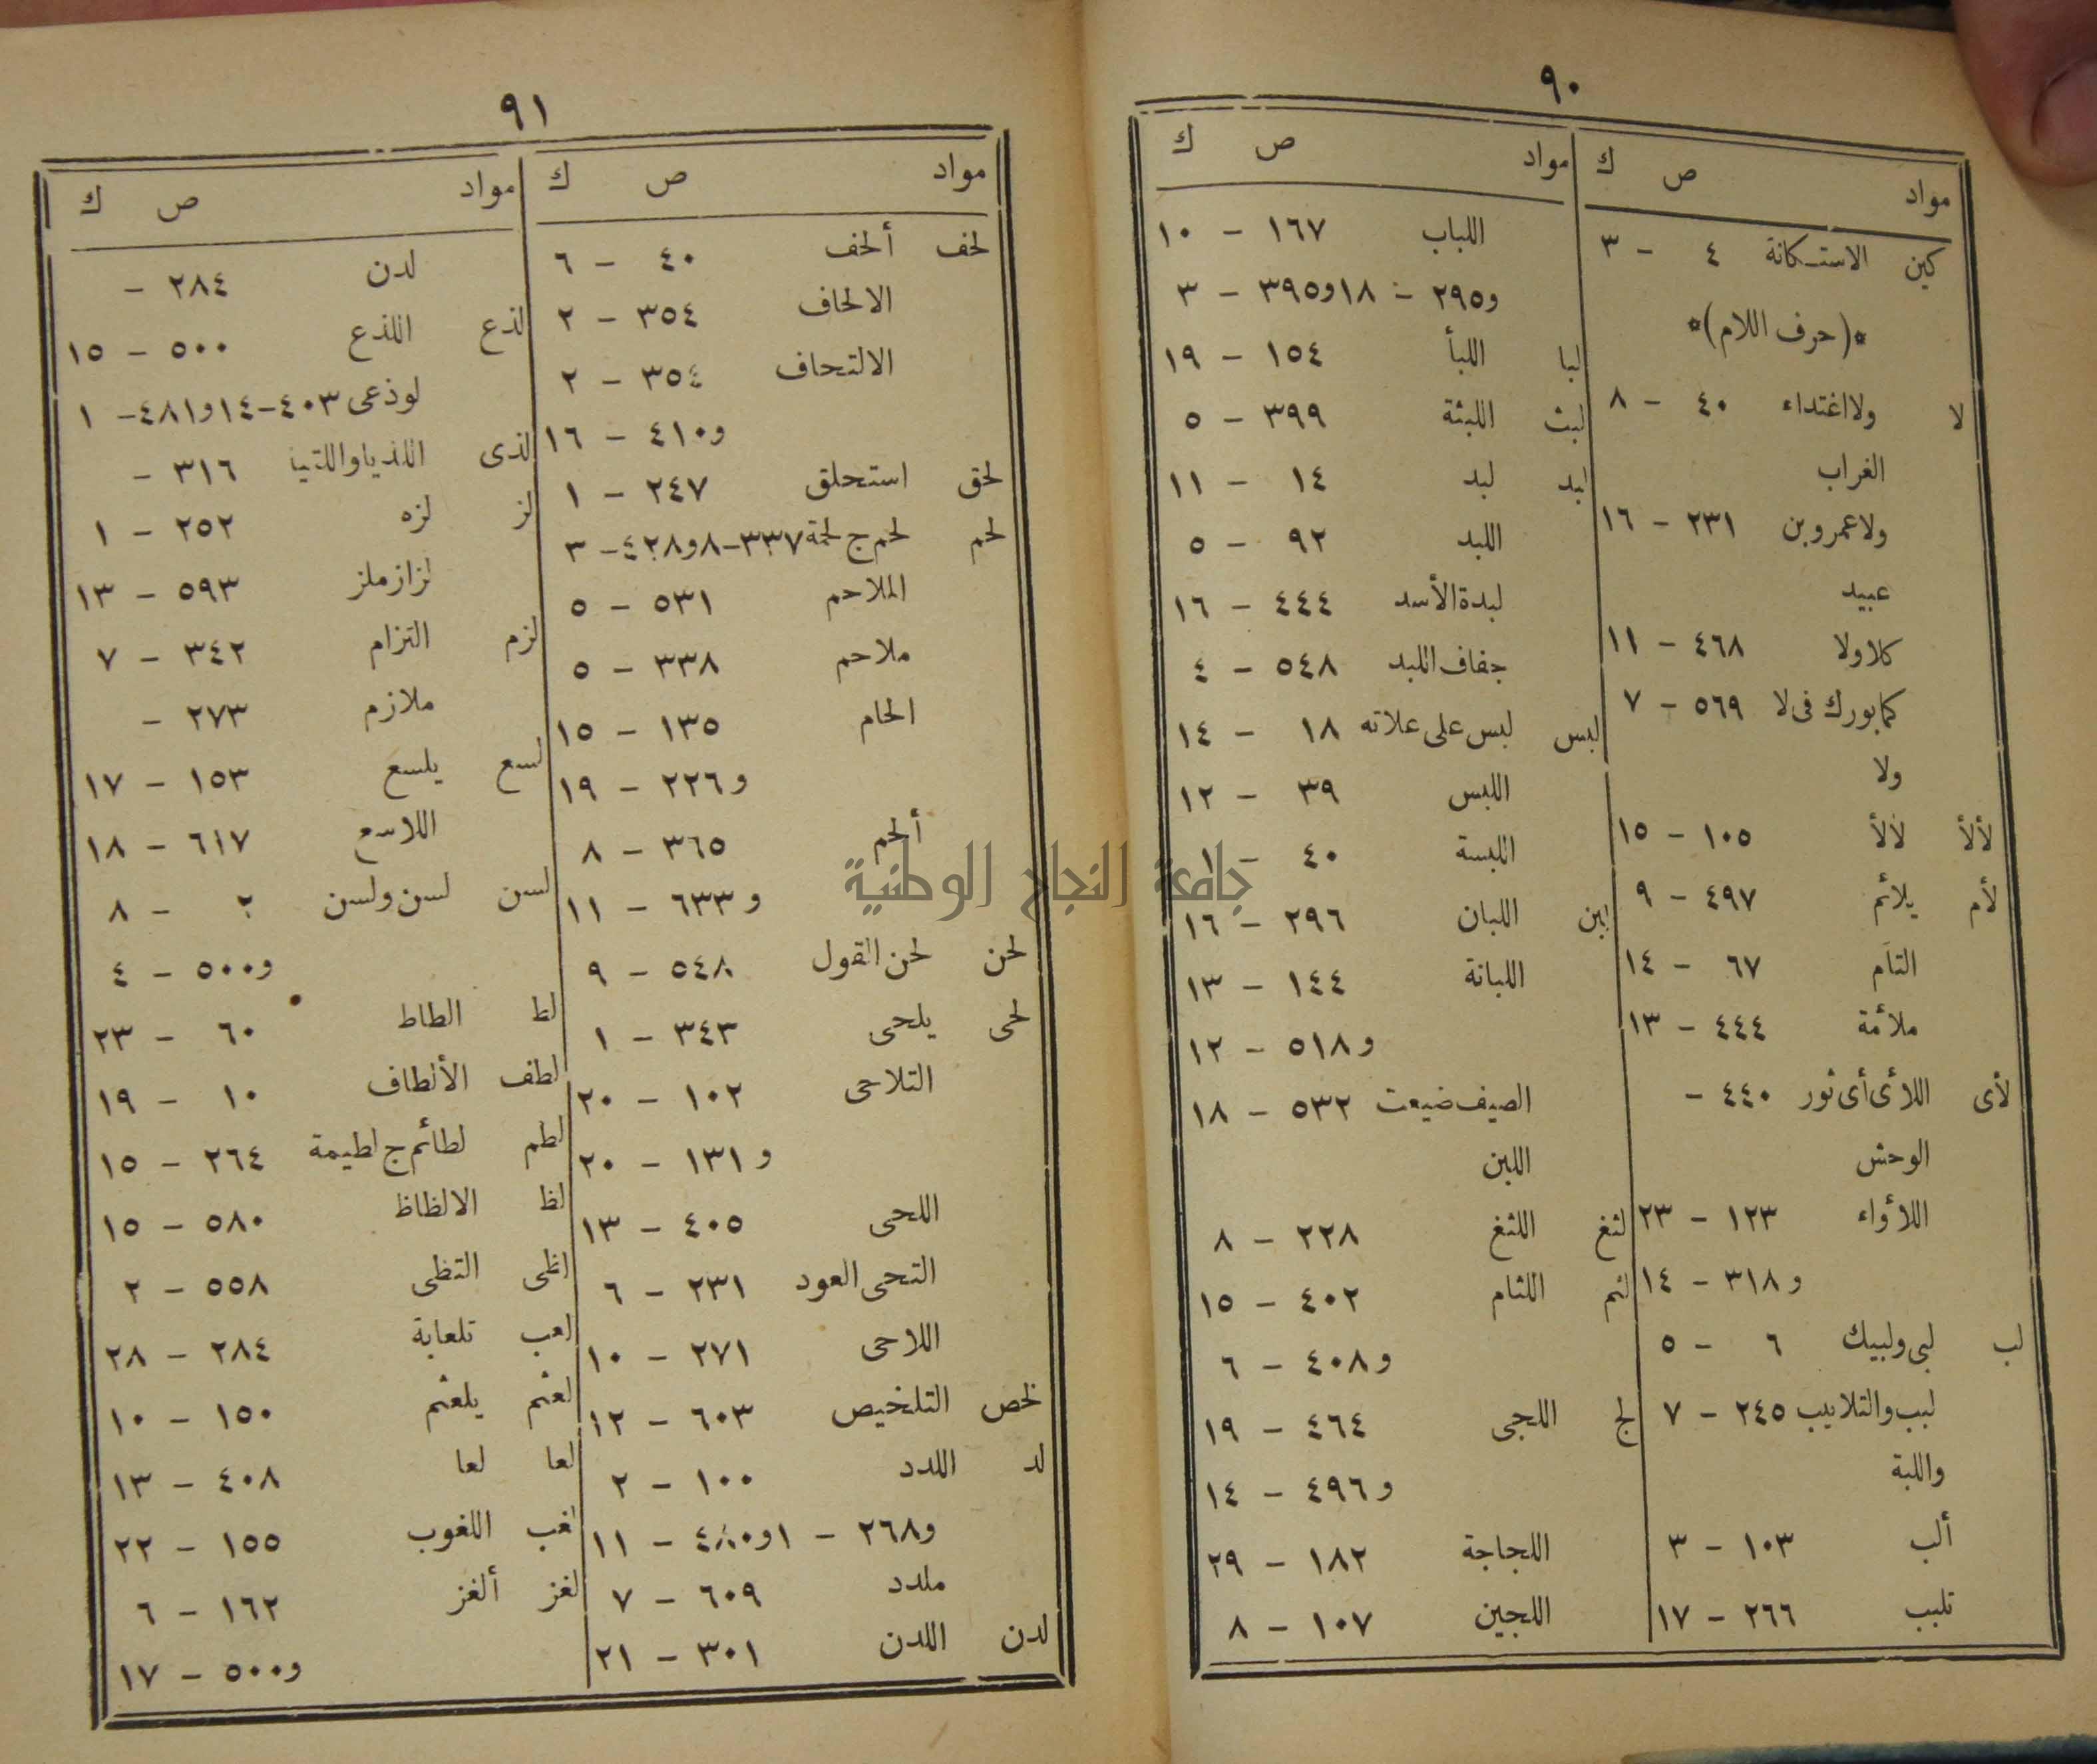 ٩٠
مواد ص ك
كين الاستكانة ٤ - ٣
*(حرف اللام)*
لا ولا اغتداء ٤٠ - ٨
الغراب
ولا عمرو بن ٢٣١ - ١٦
عبيد
كلا ولا ٤٦٨ - ١١
كما بورك فى لا ٥٦٩ - ٧
ولا
لألأ لألأ ١٠٥ - ١٥
لأم يلائم ٤٩٧ - ٩
التأم ٦٧ - ١٤
ملائمة ٤٤٤ - ١٣
لأى اللأى أى ثور ٤٤٠ -
الوحش
اللأواء ١٢٣ - ٢٣
و٣١٨ - ١٤
لب لبى ولبيك ٦ - ٥
لبب والتلابيب ٢٤٥ - ٧
واللبة
ألب ١٠٣ - ٣
تلبب ٢٦٦ - ١٧
مواد ص ك
اللباب ١٦٧ - ١٠
و٢٩٥ - ١٨ و٣٩٥ - ٣
لبا اللبأ ١٥٤ - ١٩
لبث اللبثة ٣٩٩ - ٥
لبد لبد ١٤ - ١١
اللبد ٩٢ - ٥
لبدة الأسد ٤٤٤ - ١٦
جفاف اللبد ٥٤٨ - ٤
لبس لبس على علاته ١٨ - ١٤
اللبس ٣٩ - ١٢
اللبسة ٤٠ - ١
لبن اللبان ٢٩٦ - ١٦
اللبانة ١٤٤ - ١٣
و٥١٨ - ١٢
الصيف ضيعت ٥٣٢ - ١٨
اللبن
لثغ اللثغ ٢٢٨ - ٨
لثم اللثام ٤٠٢ - ١٥
و٤٠٨ - ٦
لج اللجى ٤٦٤ - ١٩
و٤٩٦ - ١٤
اللجاجة ١٨٢ - ٢٩
اللجين ١٠٧ - ٨
٩١
مواد ص ك
لحف ألحف ٤٠ - ٦
الالحاف ٣٥٤ - ٢
الالتحاف ٣٥٤ - ٢
و٤١٠ - ١٦
لحق استحلق ٢٤٧ - ١
لحم لحم ج لحمة ٣٣٧-٨ و٤٢٨- ٣
الملاحم ٥٣١ - ٥
ملاحم ٣٣٨ - ٥
الحام ١٣٥ - ١٥
و٢٢٦ - ١٩
ألحم ٣٦٥ - ٨
و٦٣٣ - ١١
لحن لحن القول ٥٤٨ - ٩
لحى يلحى ٣٤٣ - ١
التلاحى ١٠٢ - ٢٠
و١٣١ - ٢٠
اللحى ٤٠٥ - ١٣
التحى العود ٢٣١ - ٦
اللاحى ٢٧١ - ١٠
لخص التلخيص ٦٠٣ - ١٢
لد اللدد ١٠٠ - ٢
و٢٦٨ - ١ و٤٨٠ - ١١
ملدد ٦٠٩ - ٧
لدن اللدن ٣٠١ - ٢١
مواد ص ك
لدن ٢٨٤ -
لذع اللذع ٥٠٠ - ١٥
لوذعى ٤٠٣-١٤ و٤٨١- ١
لذى اللذيا واللتيا ٣١٦ -
لز لزه ٢٥٢ - ١
لزاز ملز ٥٩٣ - ١٣
لزم التزام ٣٤٢ - ٧
ملازم ٢٧٣ -
لسع يلسع ١٥٣ - ١٧
اللاسع ٦١٧ - ١٨
لسن لسن ولسن ٢ - ٨
و٥٠٠ - ٤
لط الطاط ٦٠ - ٢٣
لطف الألطاف ١٠ - ١٩
لطم لطائم ج لطيمة ٢٦٤ - ١٥
لظ الالظاظ ٥٨٠ - ١٥
لظى التظى ٥٥٨ - ٢
لعب تلعابة ٢٨٤ - ٢٨
لعثم يلعثم ١٥٠ - ١٠
لعا لعا ٤٠٨ - ١٣
لغب اللغوب ١٥٥ - ٢٢
لغز ألغز ١٦٢ - ٦
و٥٠٠ - ١٧
جامعة النجاح الوطنية